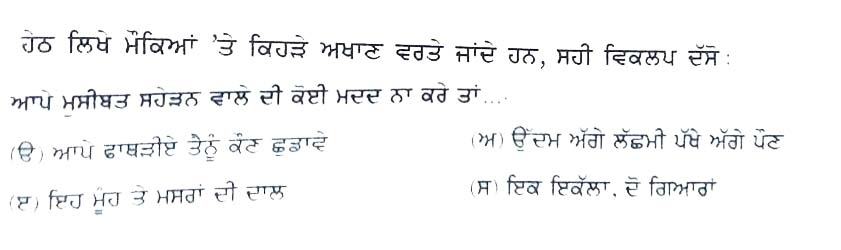 ਹੇਠ ਲਿਖੇ ਮੌਕਿਆਂ 'ਤੇ ਕਿਹੜੇ ਅਖਾਣ ਵਰਤੇ ਜਾਂਦੇ ਹਨ, ਸਹੀ ਵਿਕਲਪ ਦੱਸੋ :
ਆਪੇ ਮੁਸੀਬਤ ਸਹੇੜਨ ਵਾਲੇ ਦੀ ਕੋਈ ਮਦਦ ਨਾ ਕਰੇ ਤਾਂ....
(ੳ) ਆਪੇ ਫਾਥੜੀਏ ਤੈਨੂੰ ਕੌਣ ਛੁਡਾਵੇ (ਅ) ਉੱਦਮ ਅੱਗੇ ਲੱਛਮੀ ਪੱਖੇ ਅੱਗੇ ਪੌਣ
(ੲ) ਇਹ ਮੂੰਹ ਤੇ ਮਸਰਾਂ ਦੀ ਦਾਲ (ਸ) ਇਕ ਇਕੱਲਾ, ਦੋ ਗਿਆਰਾਂ